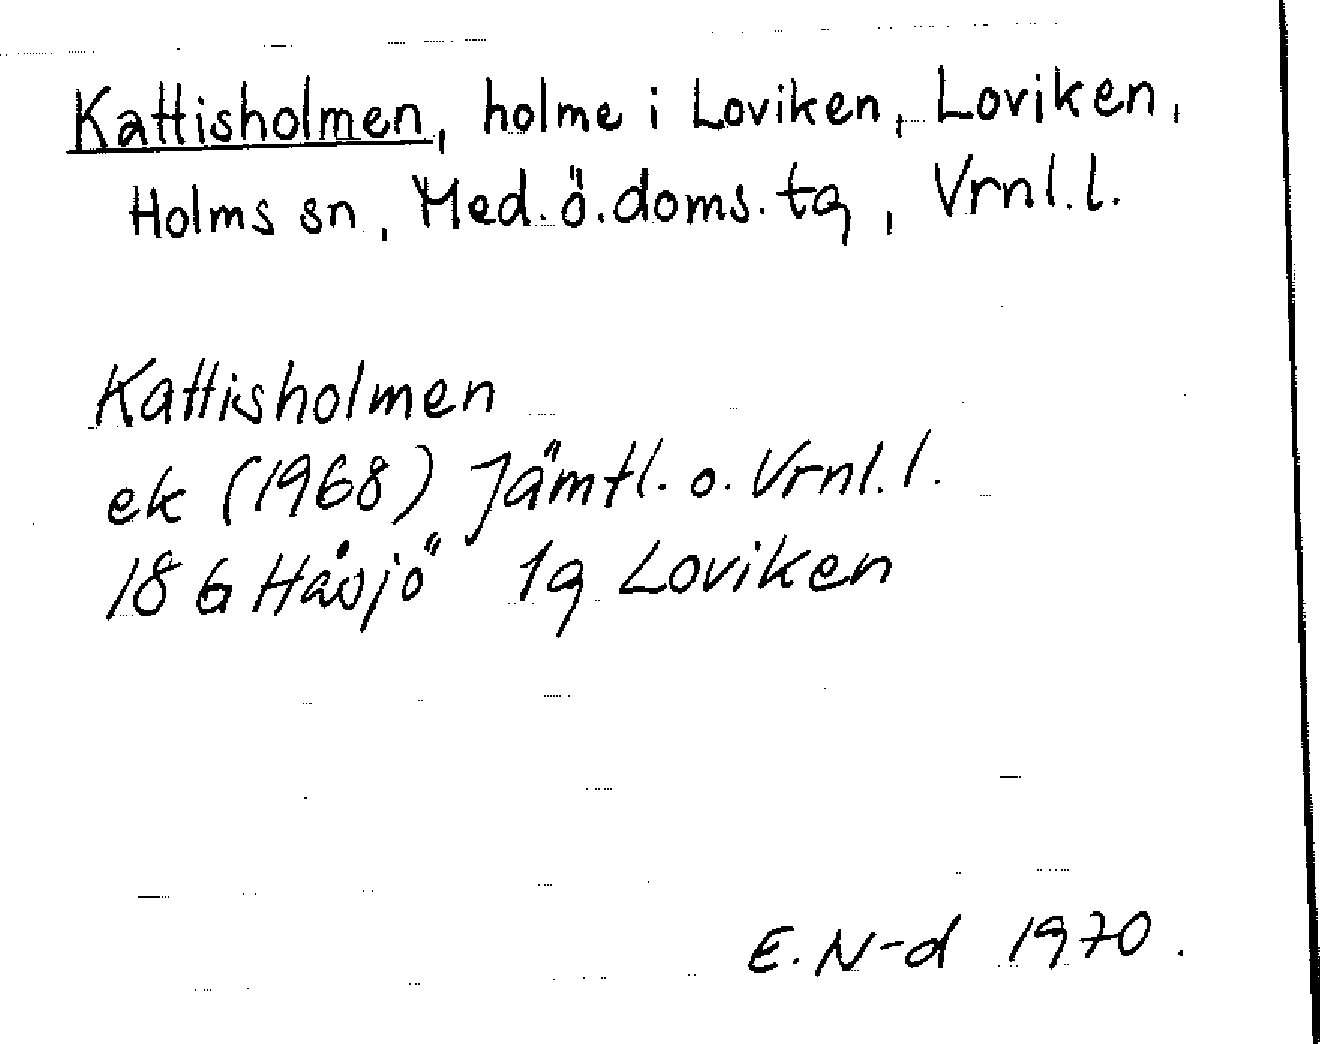 Kattisholmen, holme i Loviken, Loviken,
Holms sn, Med. ö. doms. tg, Vrnl. l.
Kattisholmen
ek (1968) Jämtl. o. Vrnl. l.
18 G Håsjö 1g Loviken
E. N-d 1970.